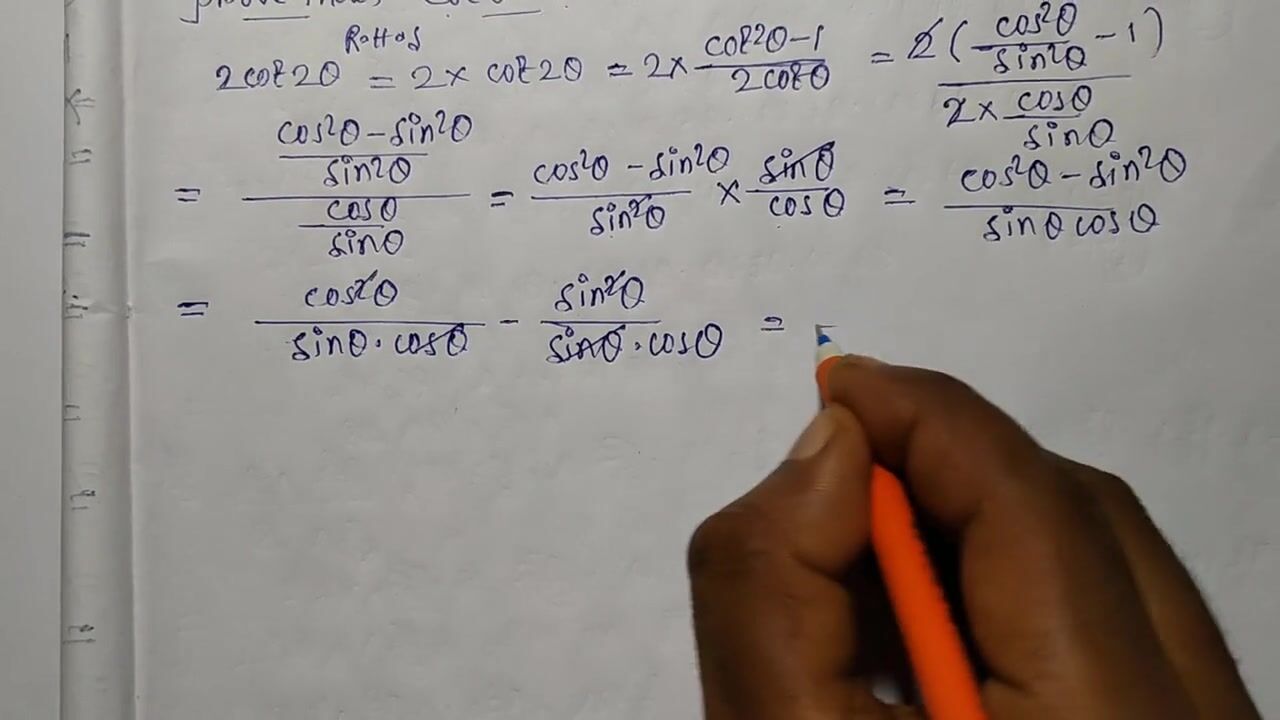 R.H.S
2cot2θ = 2 × cot2θ = 2 × (cot²θ-1)/(2cotθ) = 2(cos²θ/sin²θ - 1)/(2 × cosθ/sinθ)
= ((cos²θ - sin²θ)/sin²θ)/(cosθ/sinθ) = (cos²θ - sin²θ)/sin²θ × sinθ/cosθ = (cos²θ - sin²θ)/(sinθ cosθ)
= cos²θ/(sinθ · cosθ) - sin²θ/(sinθ · cosθ) =